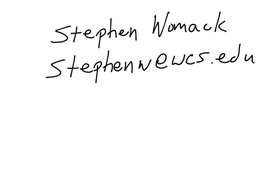 Stephen Womack
Stephenw@wcs.edu